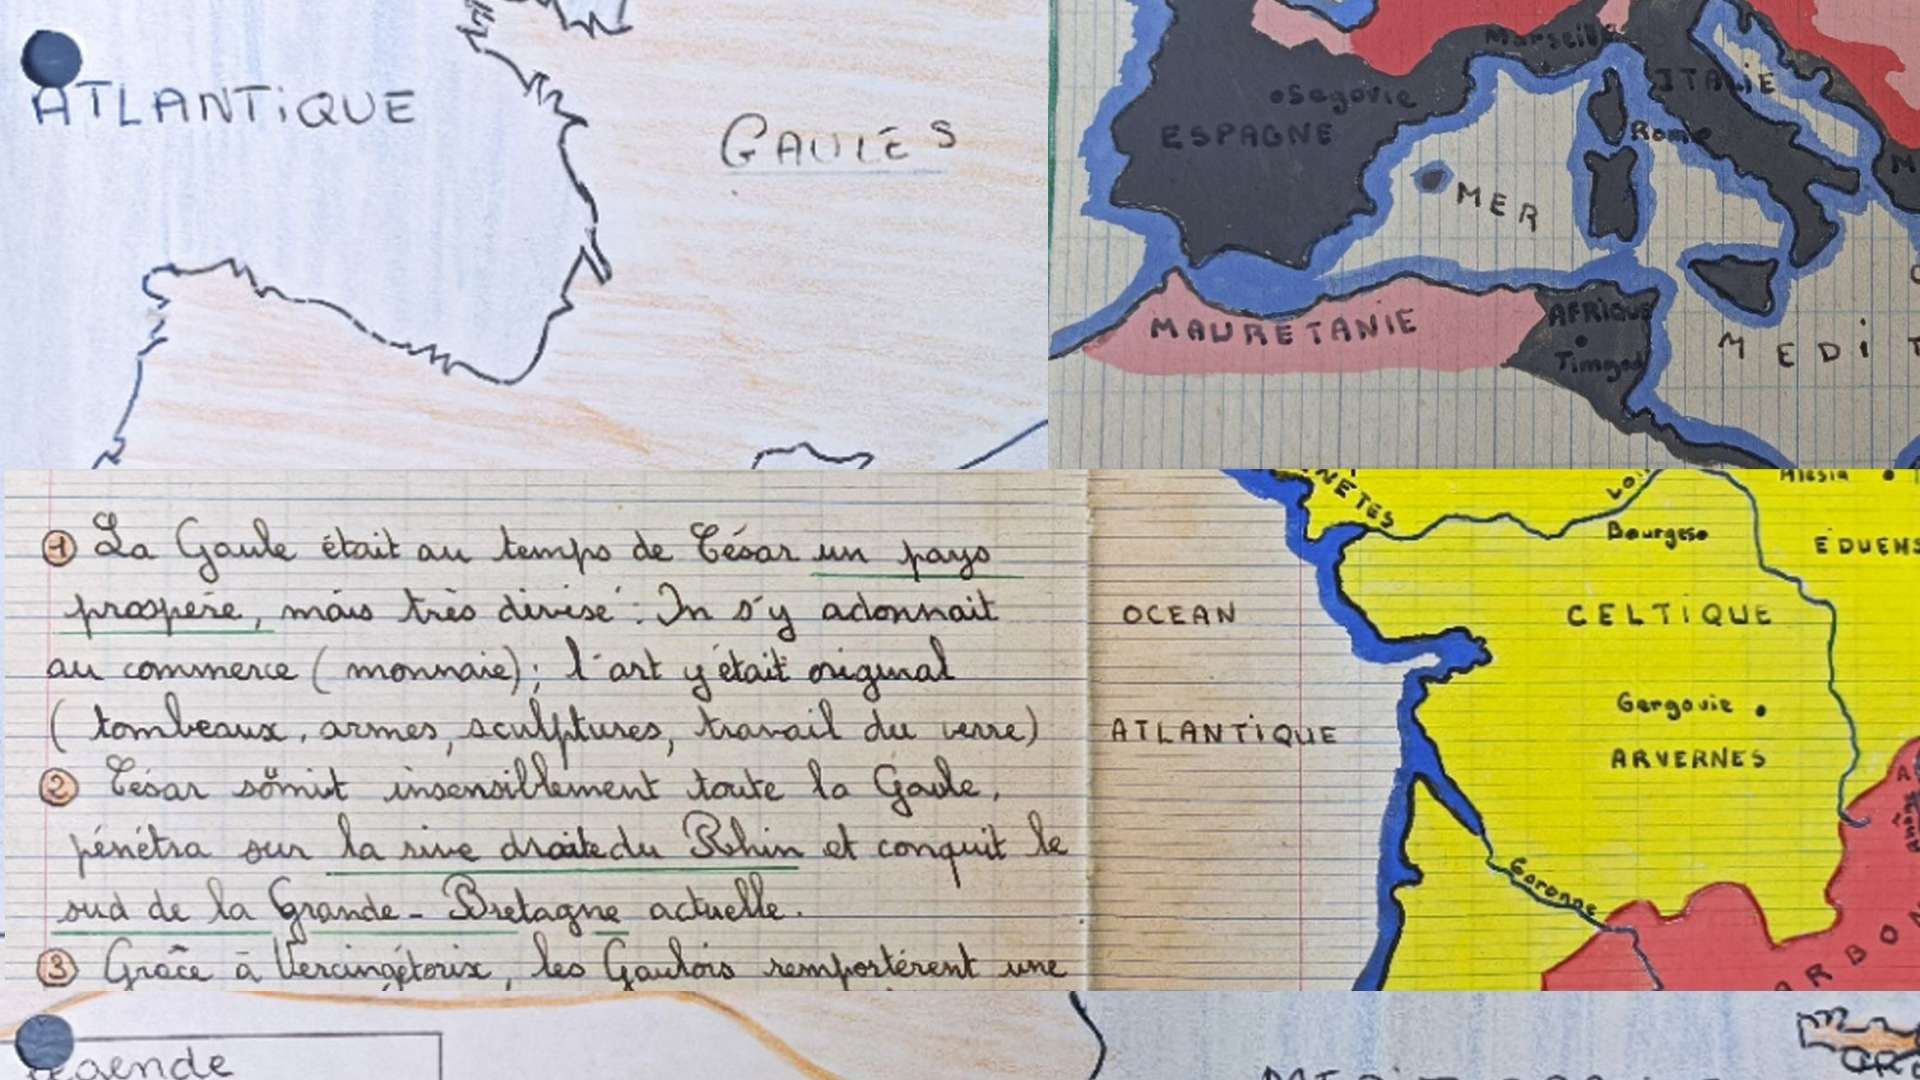 ATLANTIQUE
GAULES
Marseille
Segovie
ITALIE
ESPAGNE
Rome
MER
MAURETANIE
AFRIQUE
Timgad
MEDIT
① La Gaule était au temps de César un pays
prospère, mais très divisé : On s'y adonnait
au commerce ( monnaie) ; l'art y était original
( tombeaux, armes, sculptures, travail du verre)
② César soumit insensiblement toute la Gaule,
pénétra sur la rive droite du Rhin et conquit le
sud de la Grande-Bretagne actuelle.
③ Grâce à Vercingétorix, les Gaulois remportèrent une
NETES
Loi
Alesia
Bourges
EDUENS
OCEAN
CELTIQUE
Gergovie
ATLANTIQUE
ARVERNES
Garonne
RBON
egende